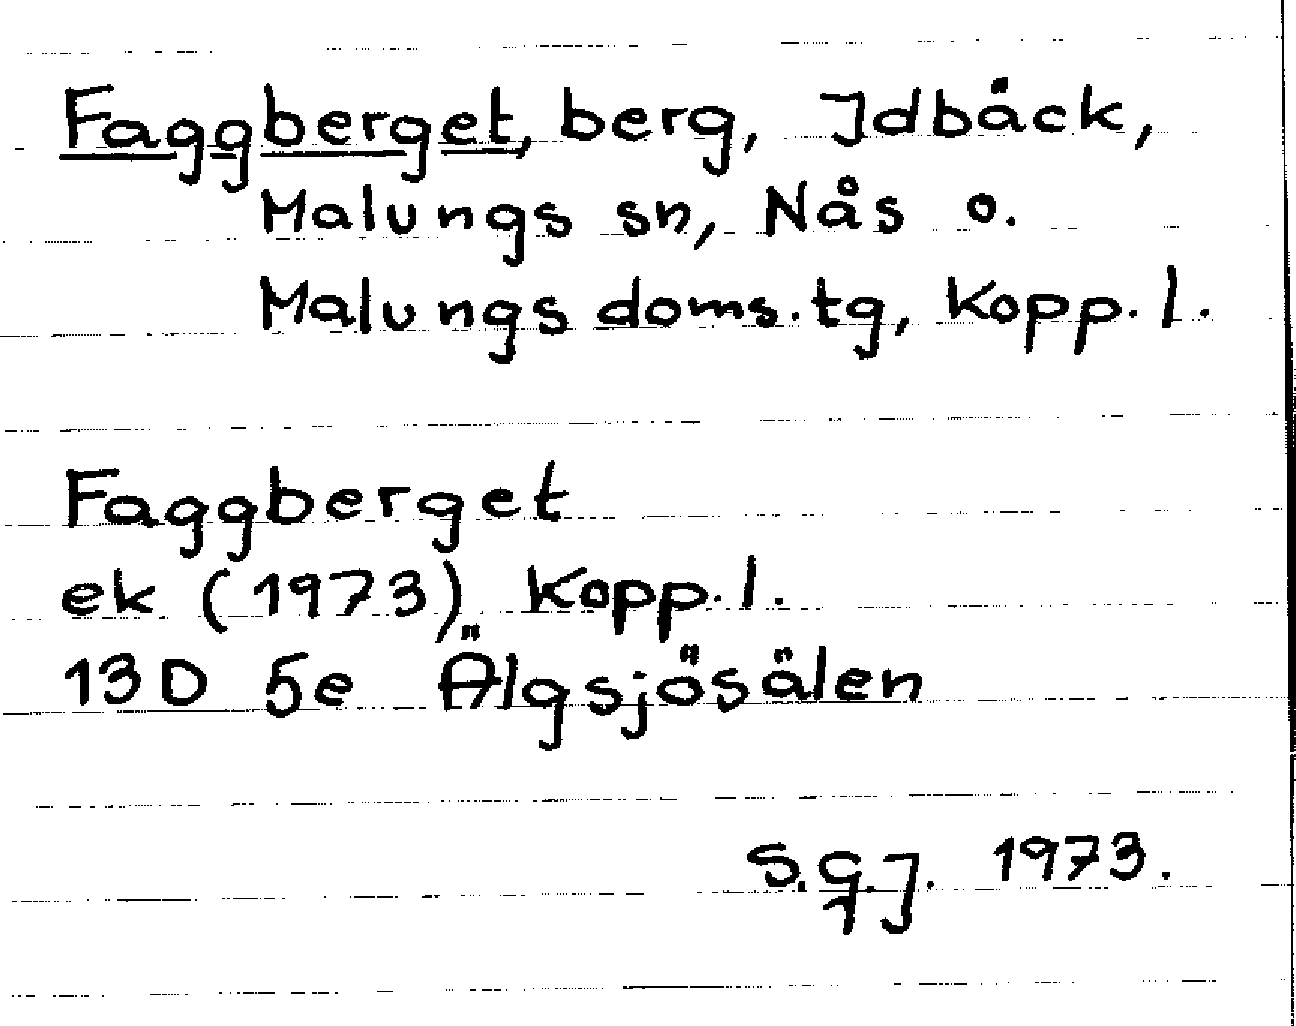 Faggberget, berg, Idbäck,
Malungs sn, Nås o.
Malungs doms.tg, Kopp.l.
Faggberget
ek (1973) Kopp.l.
13D 5e Älgsjösälen
S.G.J. 1973.